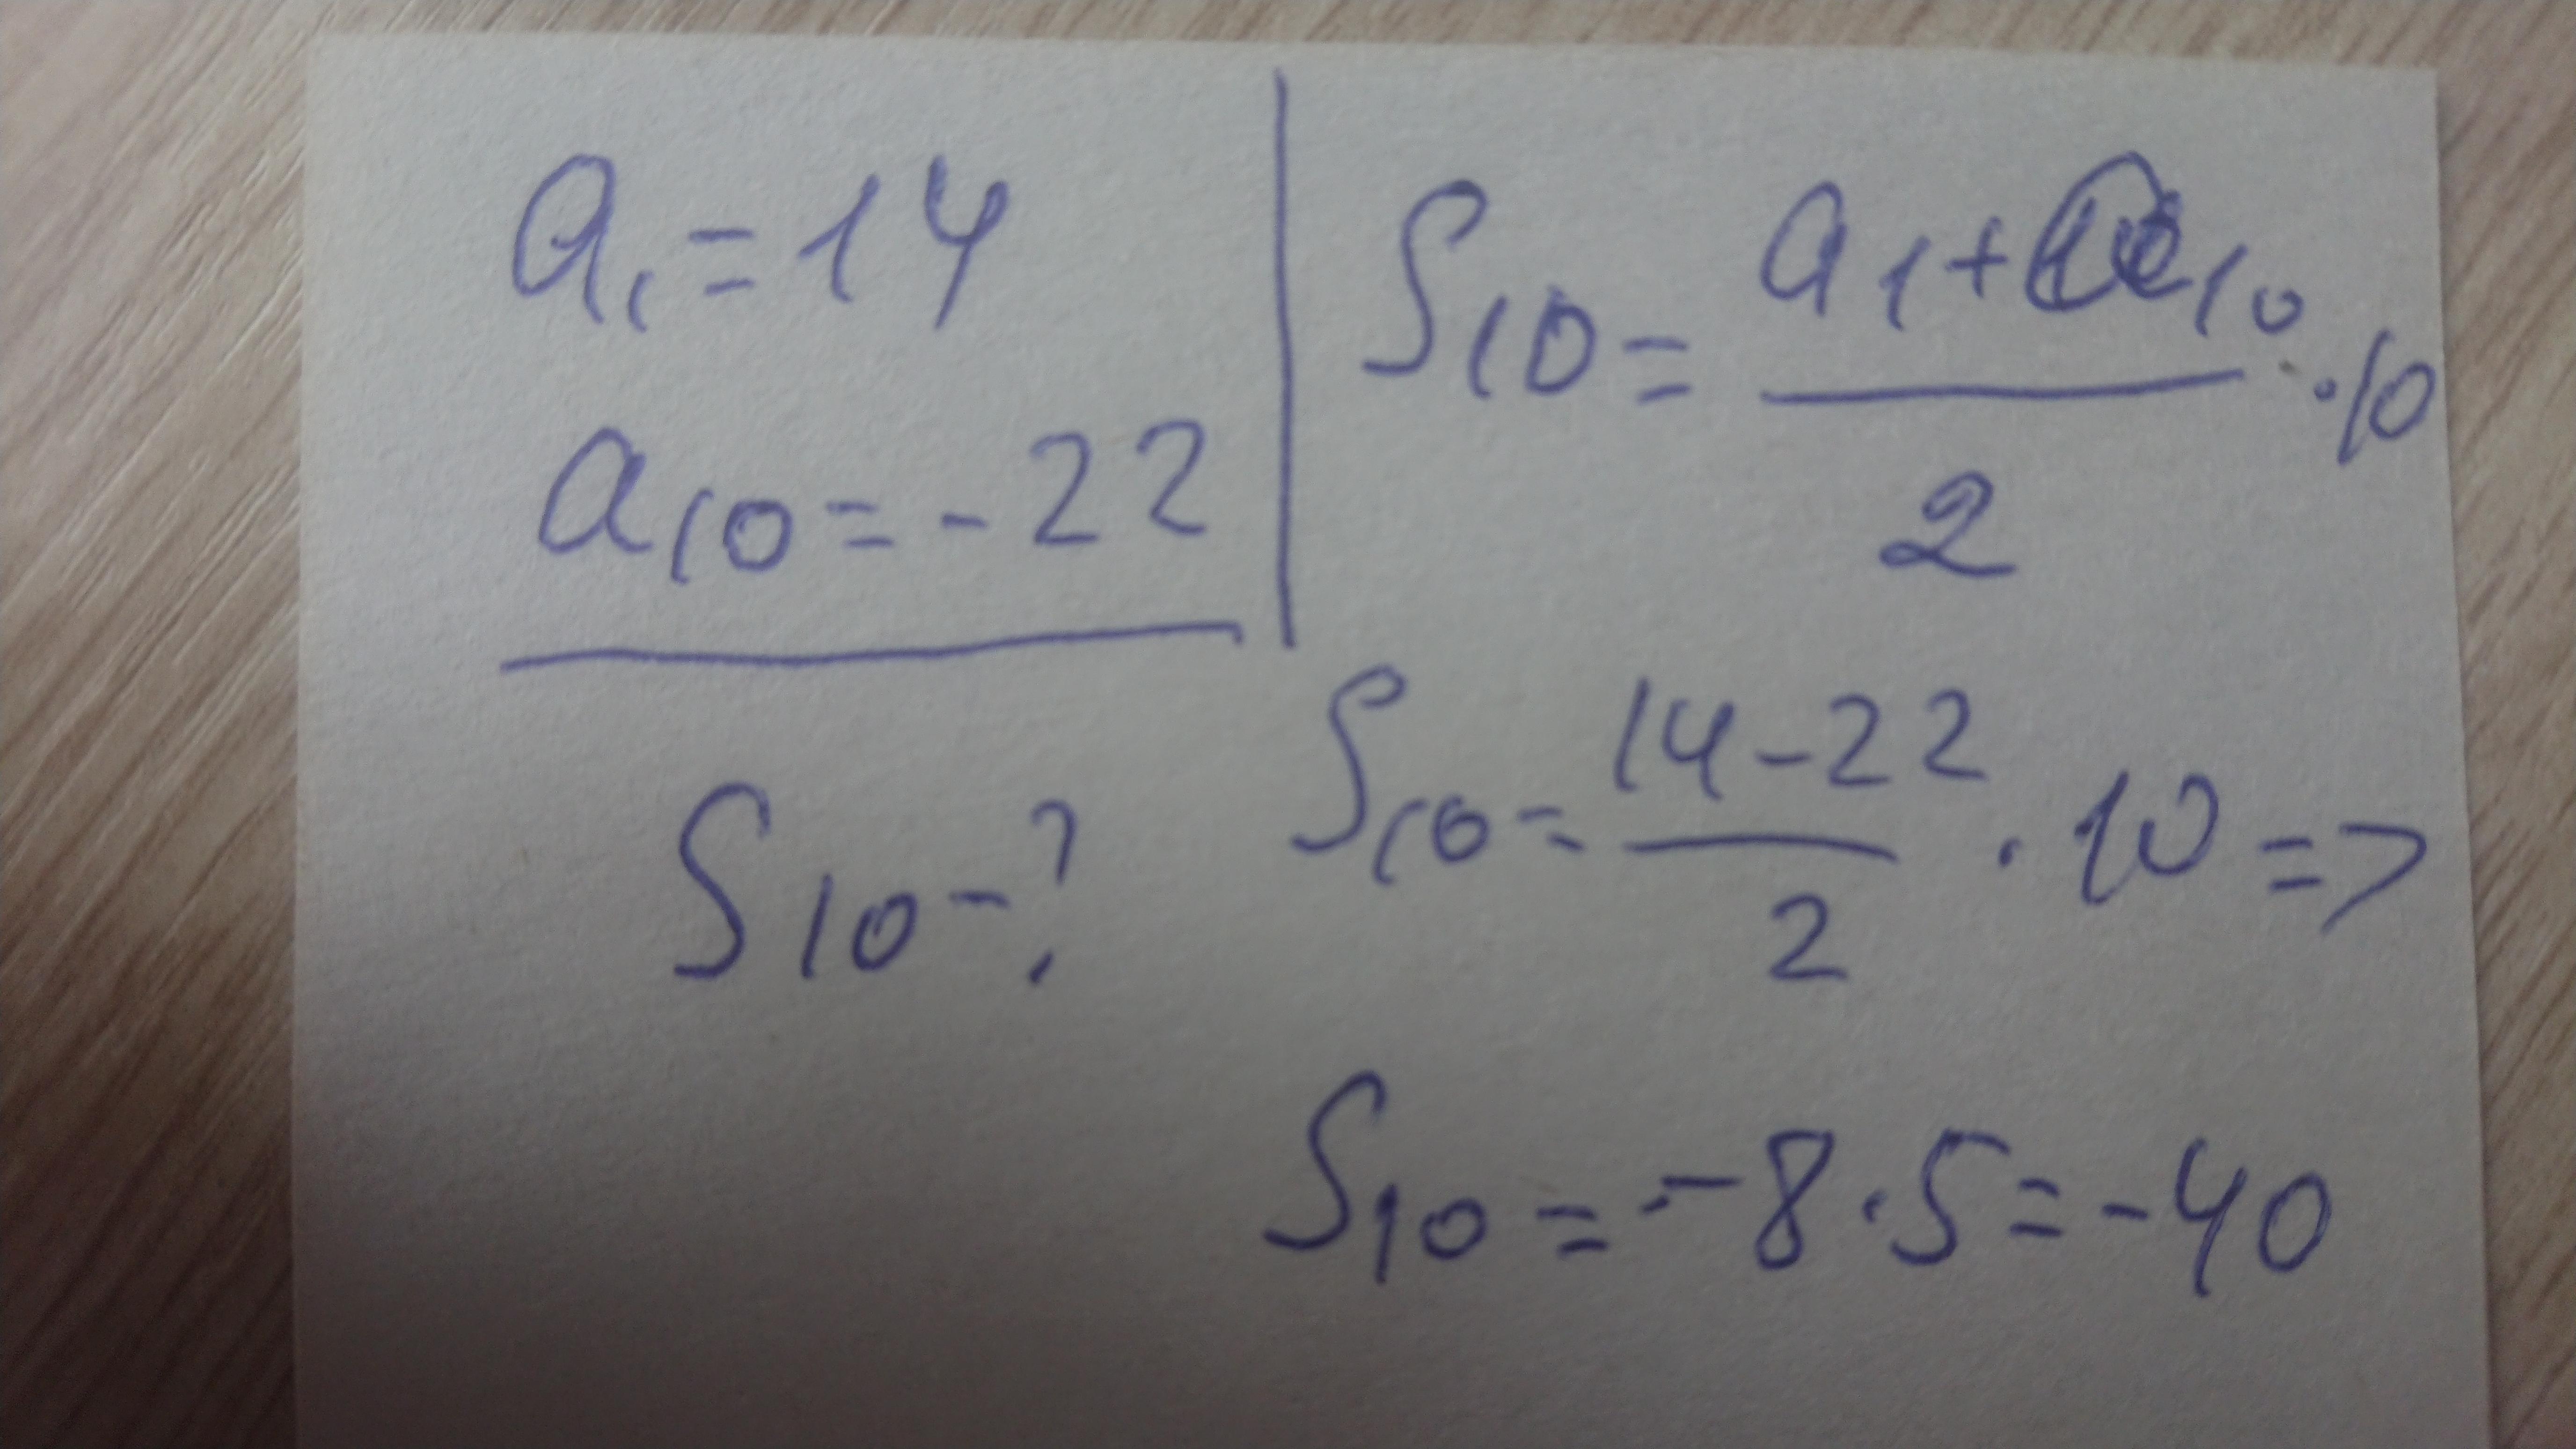 a₁ = 14
a₁₀ = -22
S₁₀ - ?
S₁₀ = (a₁ + a₁₀)/2 · 10
S₁₀ = (14 - 22)/2 · 10 =>
S₁₀ = -8 · 5 = -40